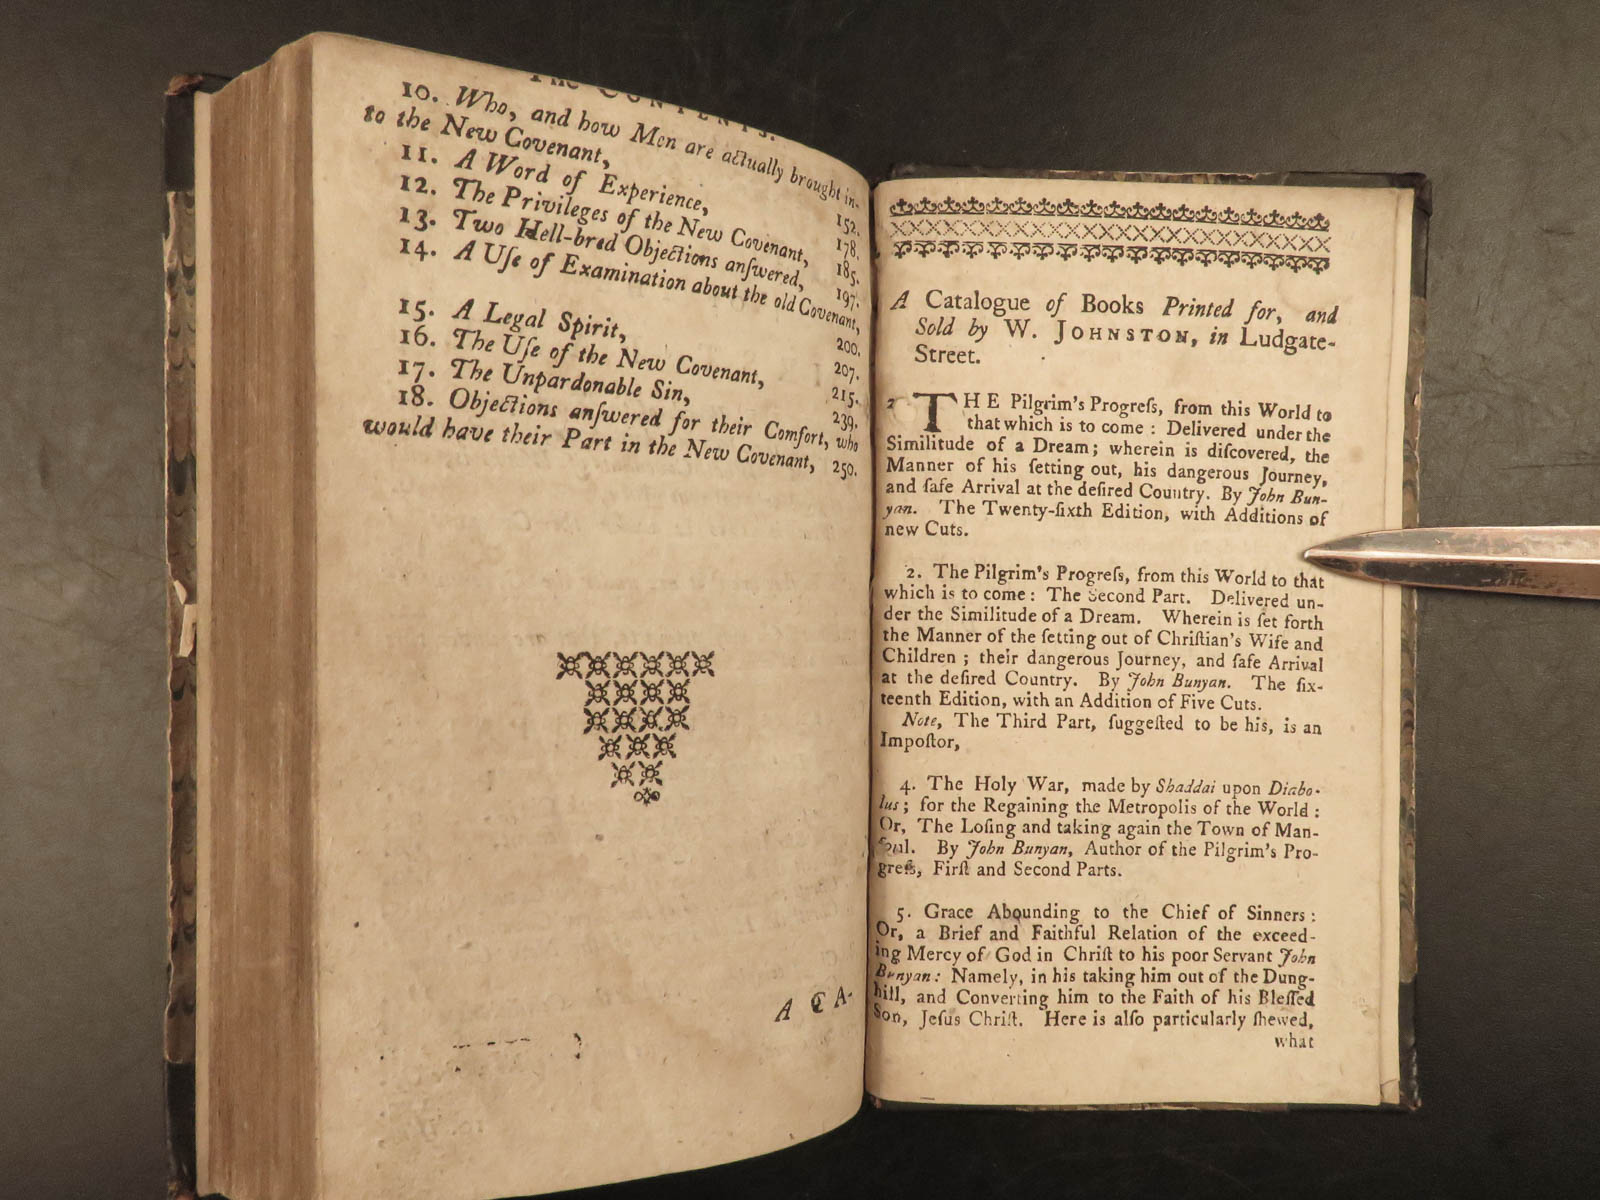 The CONTENTS.
10. Who, and how Men are actually brought in-
to the New Covenant, 152.
11. A Word of Experience, 178.
12. The Privileges of the New Covenant, 185.
13. Two Hell-bred Objections anſwered, 197.
14. A Uſe of Examination about the old Covenant,
200.
15. A Legal Spirit, 207.
16. The Uſe of the New Covenant, 215.
17. The Unpardonable Sin, 239.
18. Objections anſwered for their Comfort, who
would have their Part in the New Covenant, 250.
A CA-
A Catalogue of Books Printed for, and
Sold by W. JOHNSTON, in Ludgate-
Street.
THE Pilgrim's Progreſs, from this World to
that which is to come : Delivered under the
Similitude of a Dream; wherein is diſcovered, the
Manner of his ſetting out, his dangerous Journey,
and ſafe Arrival at the deſired Country. By John Bun-
yan. The Twenty-ſixth Edition, with Additions of
new Cuts.
2. The Pilgrim's Progreſs, from this World to that
which is to come : The Second Part. Delivered un-
der the Similitude of a Dream. Wherein is ſet forth
the Manner of the ſetting out of Chriſtian's Wife and
Children ; their dangerous Journey, and ſafe Arrival
at the deſired Country. By John Bunyan. The ſix-
teenth Edition, with an Addition of Five Cuts.
Note, The Third Part, ſuggeſted to be his, is an
Impoſtor,
4. The Holy War, made by Shaddai upon Diabo-
lus ; for the Regaining the Metropolis of the World :
Or, The Loſing and taking again the Town of Man-
ſoul. By John Bunyan, Author of the Pilgrim's Pro-
greſs, Firſt and Second Parts.
5. Grace Abounding to the Chief of Sinners :
Or, a Brief and Faithful Relation of the exceed-
ing Mercy of God in Chriſt to his poor Servant John
Bunyan : Namely, in his taking him out of the Dung-
hill, and Converting him to the Faith of his Bleſſed
Son, Jeſus Chriſt. Here is alſo particularly ſhewed,
what